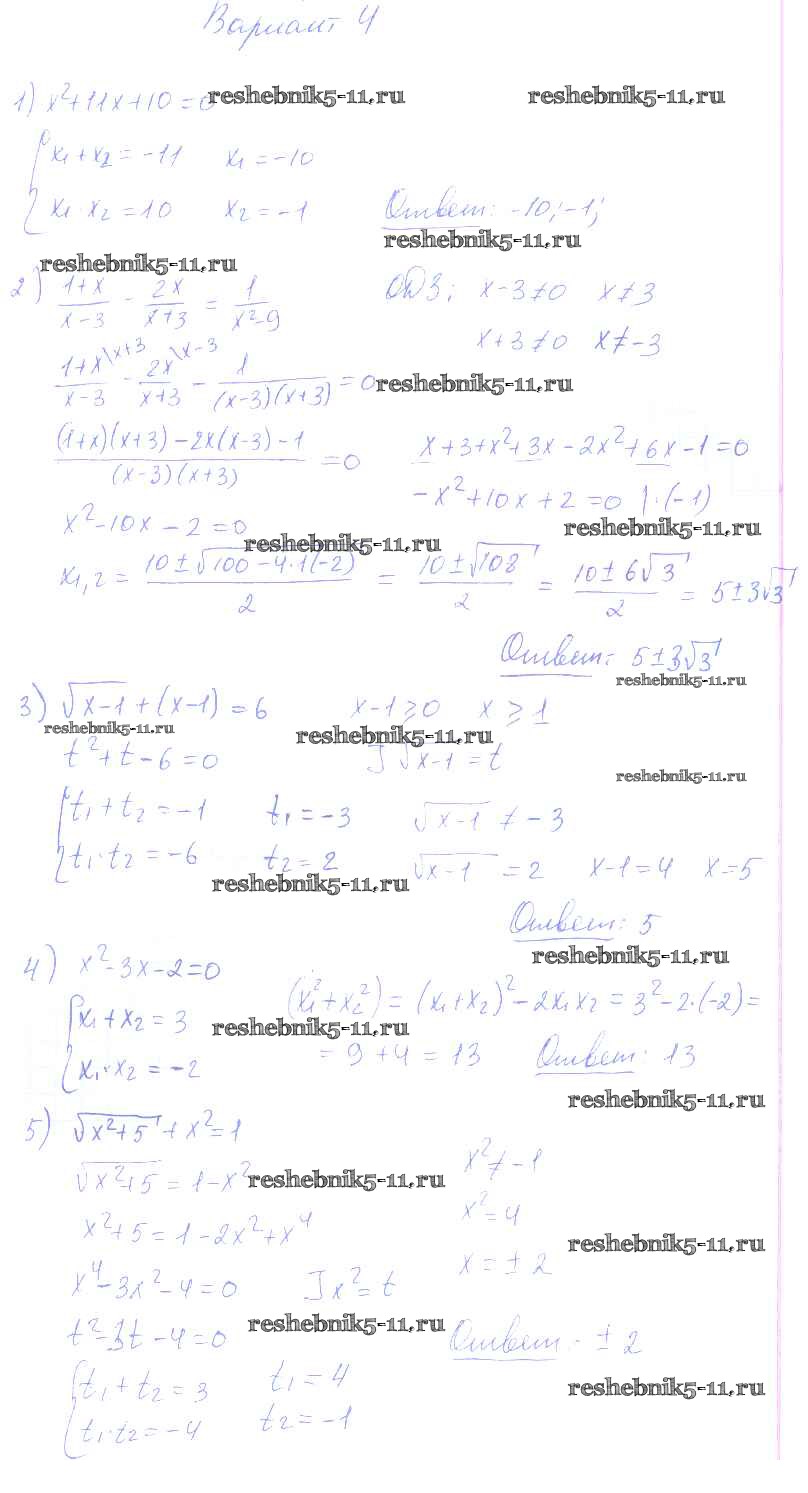 Вариант 4
1) x²+11x+10=0 reshebnik5-11.ru reshebnik5-11.ru
{ x₁+x₂=-11 x₁=-10
x₁·x₂=10 x₂=-1 Ответ: -10; -1;
reshebnik5-11.ru
reshebnik5-11.ru
2) (1+x)/(x-3) - 2x/(x+3) = 1/(x²-9) ОДЗ; x-3≠0 x≠3
x+3≠0 x≠-3
(1+x\x+3)/(x-3) - (2x\x-3)/(x+3) - 1/((x-3)(x+3)) =0 reshebnik5-11.ru
((1+x)(x+3)-2x(x-3)-1)/((x-3)(x+3)) =0 x+3+x²+3x-2x²+6x-1=0
-x²+10x+2=0 |·(-1)
x²-10x-2=0 reshebnik5-11.ru
reshebnik5-11.ru
x₁,₂ = (10±√(100-4·1(-2)))/2 = (10±√108)/2 = (10±6√3)/2 = 5±3√3
Ответ: 5±3√3
reshebnik5-11.ru
3) √(x-1) + (x-1) = 6 x-1⩾0 x⩾1
reshebnik5-11.ru reshebnik5-11.ru
t²+t-6=0 ] √(x-1) = t
reshebnik5-11.ru
{ t₁+t₂=-1 t₁=-3 √(x-1) ≠ -3
t₁·t₂=-6 t₂=2 √(x-1) =2 x-1=4 x=5
reshebnik5-11.ru
Ответ: 5
reshebnik5-11.ru
4) x²-3x-2=0
{ x₁+x₂=3 (x₁²+x₂²)=(x₁+x₂)²-2x₁x₂=3²-2·(-2)=
reshebnik5-11.ru
x₁·x₂=-2 =9+4=13 Ответ: 13
reshebnik5-11.ru
5) √(x²+5) + x²=1
√(x²+5) = 1-x² reshebnik5-11.ru x²≠-1
x²+5=1-2x²+x⁴ x²=4
reshebnik5-11.ru
x⁴-3x²-4=0 ] x²=t x=±2
t²-3t-4=0 reshebnik5-11.ru Ответ: ±2
{ t₁+t₂=3 t₁=4
reshebnik5-11.ru
t₁·t₂=-4 t₂=-1